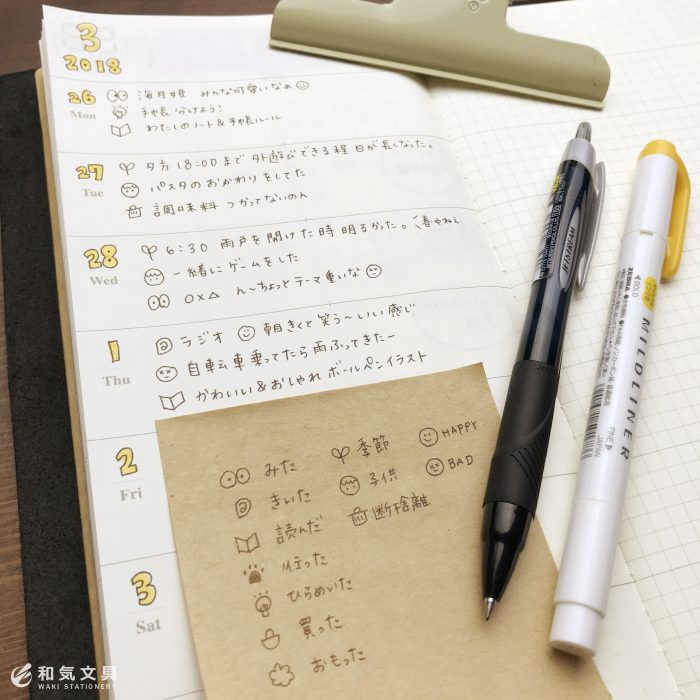 3
2018
26 Mon
海月姫 みんな可愛いなぁ
手帳分けよう!
わたしのノート&手帳ルール
27 Tue
夕方18:00まで外遊びできる程日が長くなった。
パスタのおかわりをしてた
調味料 つかってないのん
28 Wed
6:30 雨戸を開けた時明るかった。春やねぇ
一緒にゲームをした
○×△ ん〜ちょっとテーマ重いな
1 Thu
ラジオ 朝きくと笑う〜いい感じ
自転車乗ってたら雨ふってきたー
かわいい&おしゃれ ボールペンイラスト
2 Fri
3 Sat
みた 季節 HAPPY
きいた 子供 BAD
読んだ 断捨離
行った
ひらめいた
買った
おもった
BOLD
ZEBRA
MILDLINER
FINE
JAPAN
和気文具
WAKI STATIONERY